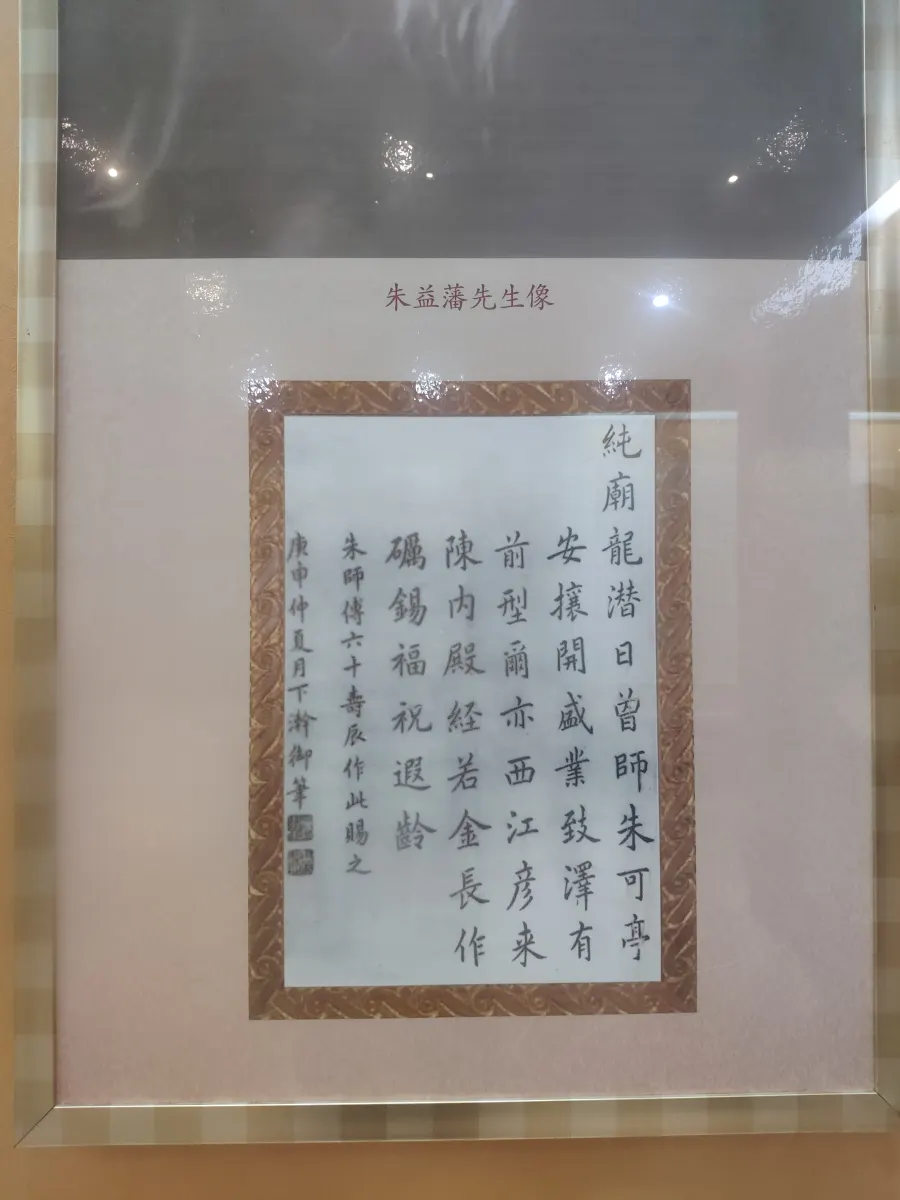 朱益藩先生像
純廟龍潛日曾師朱可亭
安攘開盛業致澤有
前型爾亦西江彦来
陳内殿経若金長作
礪錫福祝遐齡
朱師傅六十壽辰作此賜之
庚申仲夏月下澣御筆